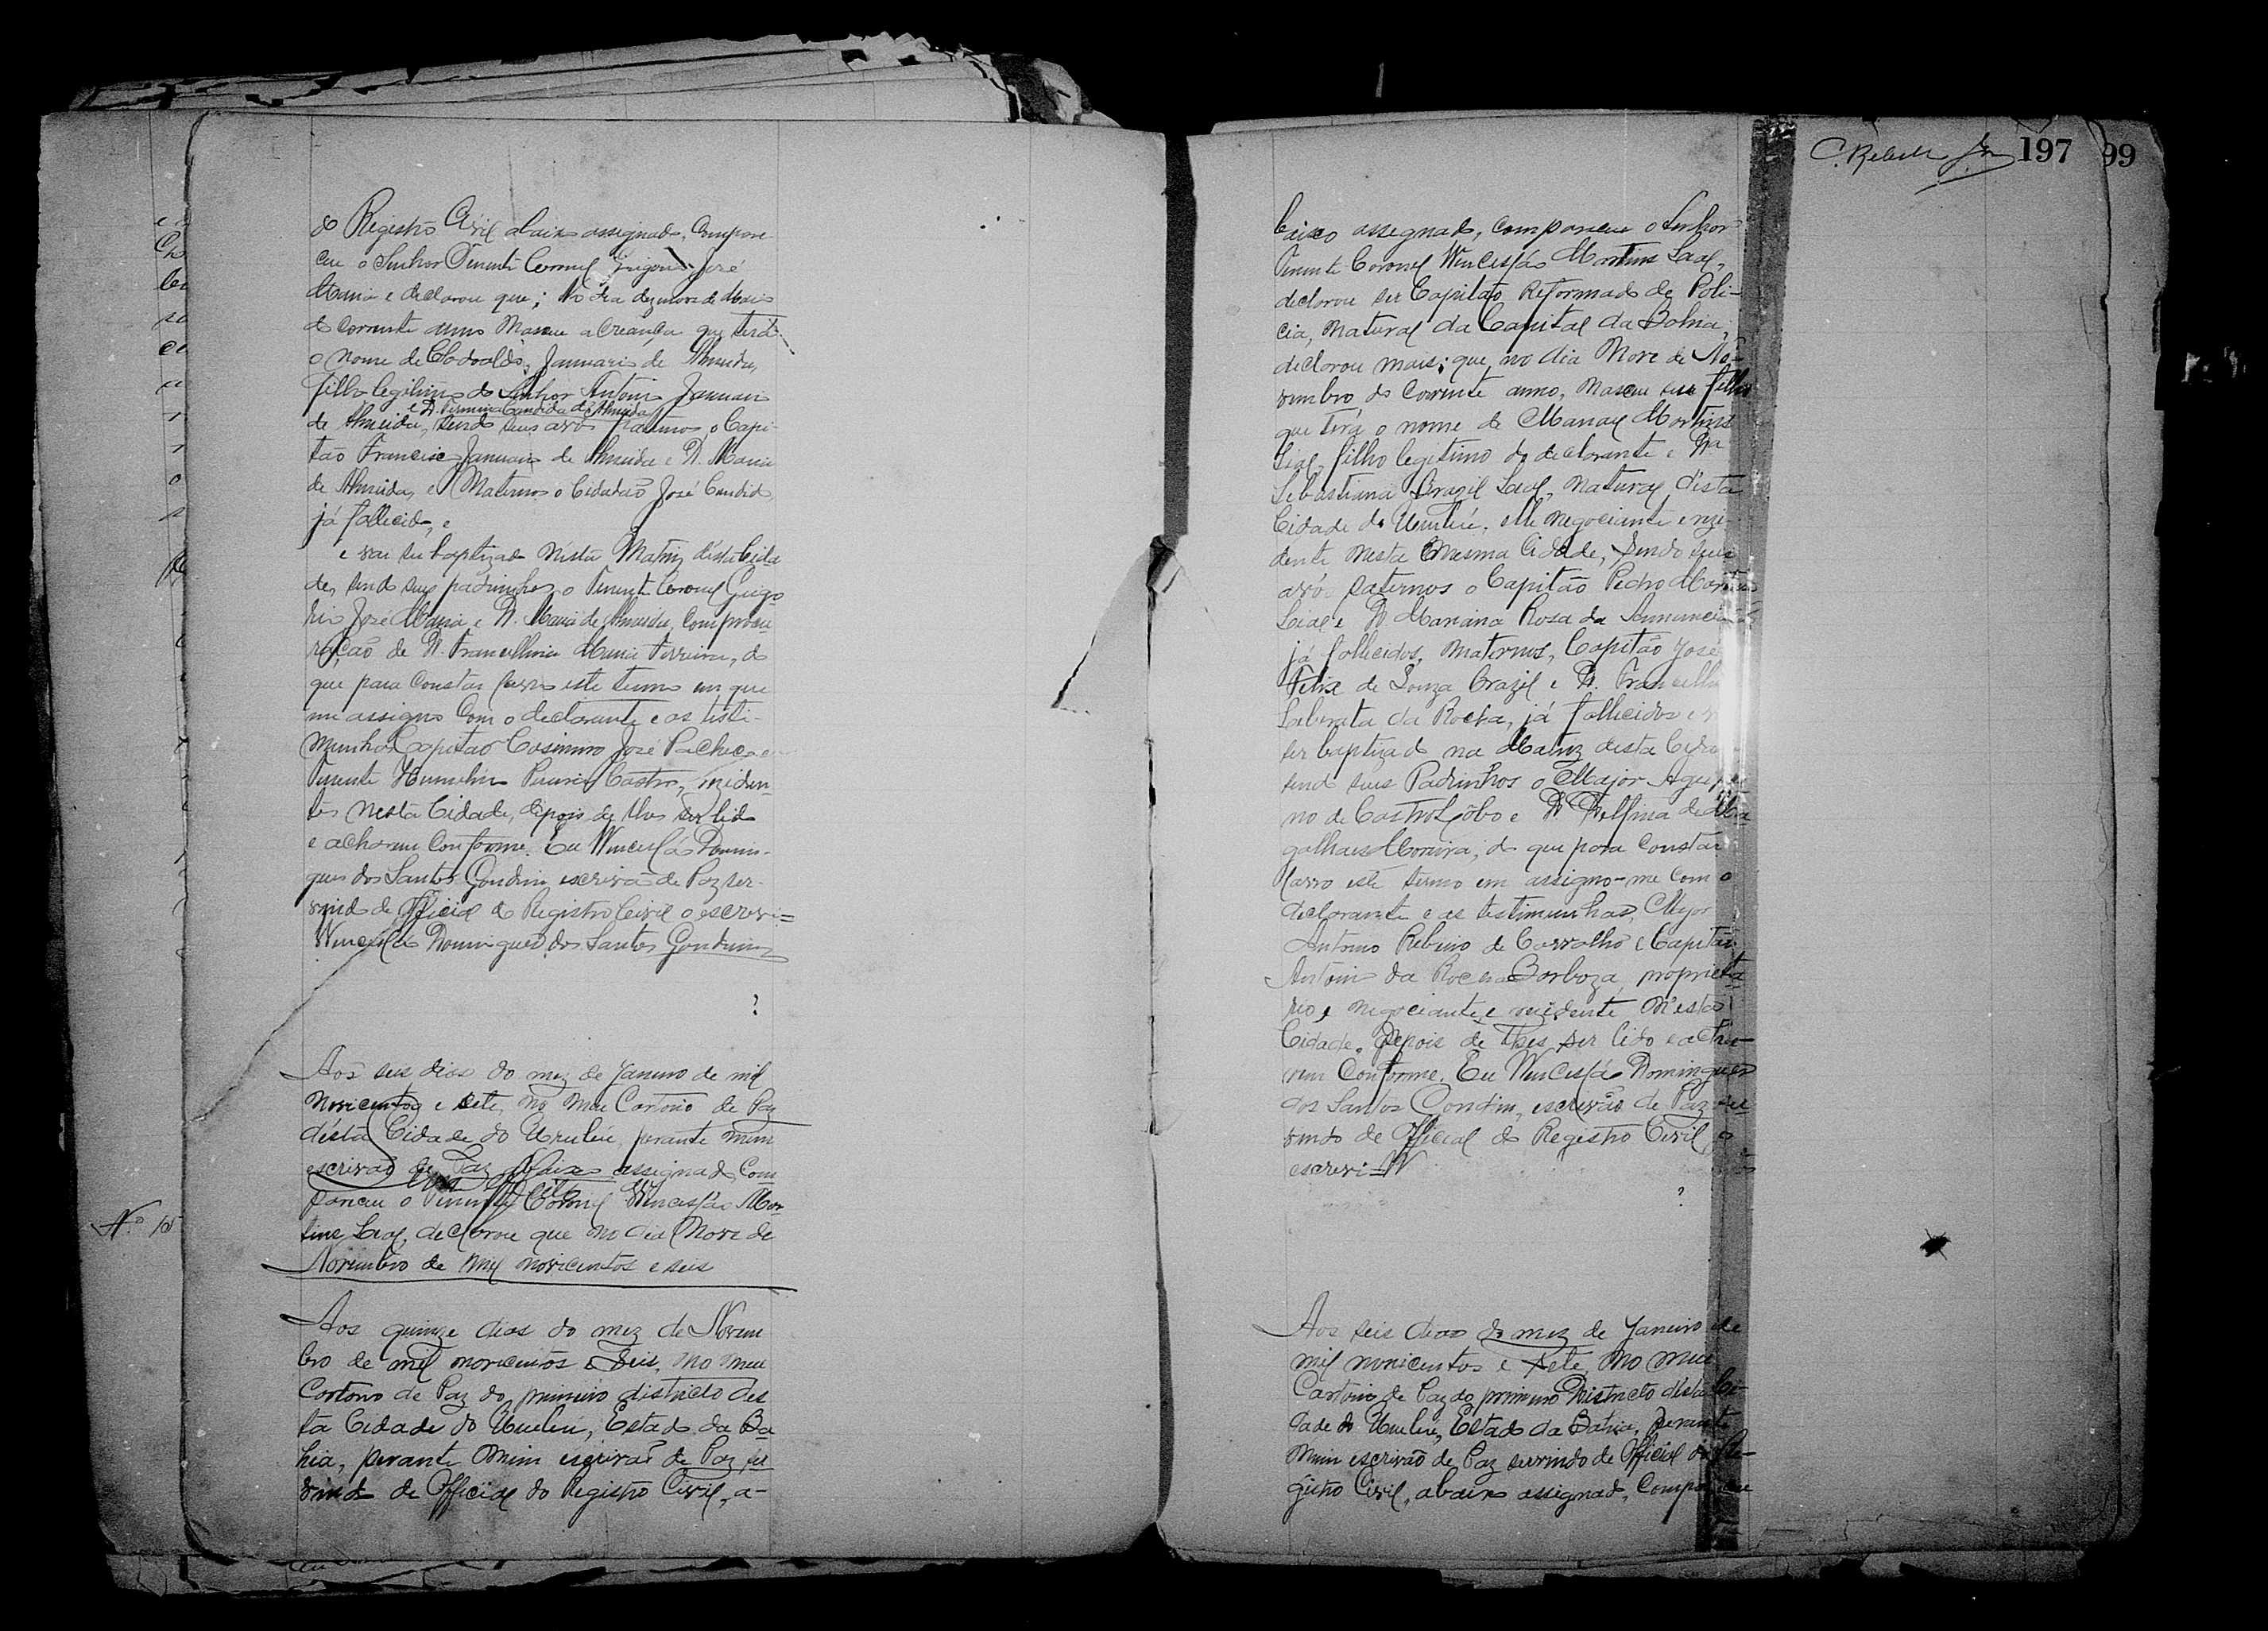 do Registro Civil abaixo assignado, compare
ceu o Senhor Tenente Coronel Grigorio José
Maria e declarou que; no dia dezenove de Maio
do corrente anno nasceu a creança que terá
o nome de Clodoaldo, Januario de Almeida,
filho legitimo do Senhor Antonio Januari
e D. Firmina Candida de Almeida
de Almeida, sendo seus avós paternos o Capi-
tão Francisco Januario de Almeida e D. Maria
de Almeida, e Maternos o Cidadão José Candido
já fallecido, e
e vai ser baptizado nésta Matriz désta Cida
de, sendo seus padrinhos o Tenente Coronel Grigo
rio José Maria e D. Maria de Almeida, com procu
ração de D. Francellina Maria Ferreira, do
que para constar lavro este termo em que
me assigno com o declarante e as testi-
munhas Capitão Casimiro José Pacheco e
Tenente Pereira Castro, reziden-
tes nesta Cidade, depois de lhes ser lido
e acharem conforme. Eu Wencesláo Domin-
gues dos Santos Gondim escrivão de Paz ser-
vindo de Official do Registro Civil o escrevi=
Wencesláo Domingues dos Santos Gondim
?
Aos seis dias do mez de Janeiro de mil
novicentos e sete, no meu Cartorio de Paz
désta Cidade do Urubú, perante mim
escrivão de Paz abaixo assignado, com
pareceu o Tenente Coronel Wencesláo Mar-
tins Leal, declarou que no dia Nove de
Novembro de mil novicentos e seis
Nº
Aos quinze dias do mez de Novem
bro de mil novicentos e Seis, no meu
Cartorio de Paz do primeiro districto des
ta Cidade do Urubú, Estado da Ba
hia, perante mim escrivão de Paz ser
vindo de Official do Registro Civil, a-
C. Rebello Jor 197 99
baixo assignado, compareceu o Senhor
Tenente Coronel Wencesláo Martins Leal,
declarou ser Capitão Reformado de Poli-
cia, natural da Capital da Bahia,
declarou mais; que, no dia Nove de No-
vembro do corrente anno, nasceu seu filho
que terá o nome de Manoel Martins
Leal, filho legitimo do declarante e Da
Sebastiana Brazil Leal, natural d'esta
Cidade do Urubú, elle negociante e rezi-
dente nesta mesma Cidade, sendo seus
avós paternos o Capitão Pedro Martins
Leal e D. Mariana Rosa da Annunciação
já fallecidos, maternos, Capitão José
Felix de Souza Brazil e D. Francelli
Liberata da Rocha, já fallecidos e
ser baptizado na Matriz desta
sendo seus Padrinhos o Major Agripi
no de Castro Lôbo e D. Delfina de Ma
galhaes Moreira, do que para constar
lavro este termo em assigno-me com o
declarante e as testimunhas, Major
Antonio Rebeiro de Carvalho e Capitão
Antonio da Rocha Barboza, proprieta
rio e negociante e rezidente n'esta
Cidade. Depois de lhes ser lido e acha-
rem conforme. Eu Wencesláo Domingues
dos Santos Gondim, escrivão de Paz ser
vindo de Official do Registro Civil o
escrevi=W
?
Aos seis dias do mez de Janeiro de
mil novicentos e sete, no meu
Cartorio de Paz do primeiro Districto désta Ci-
dade do Urubú, Estado da Bahia, perante
mim escrivão de Paz servindo de Official do Re-
gistro Civil, abaixo assignado, compareceu